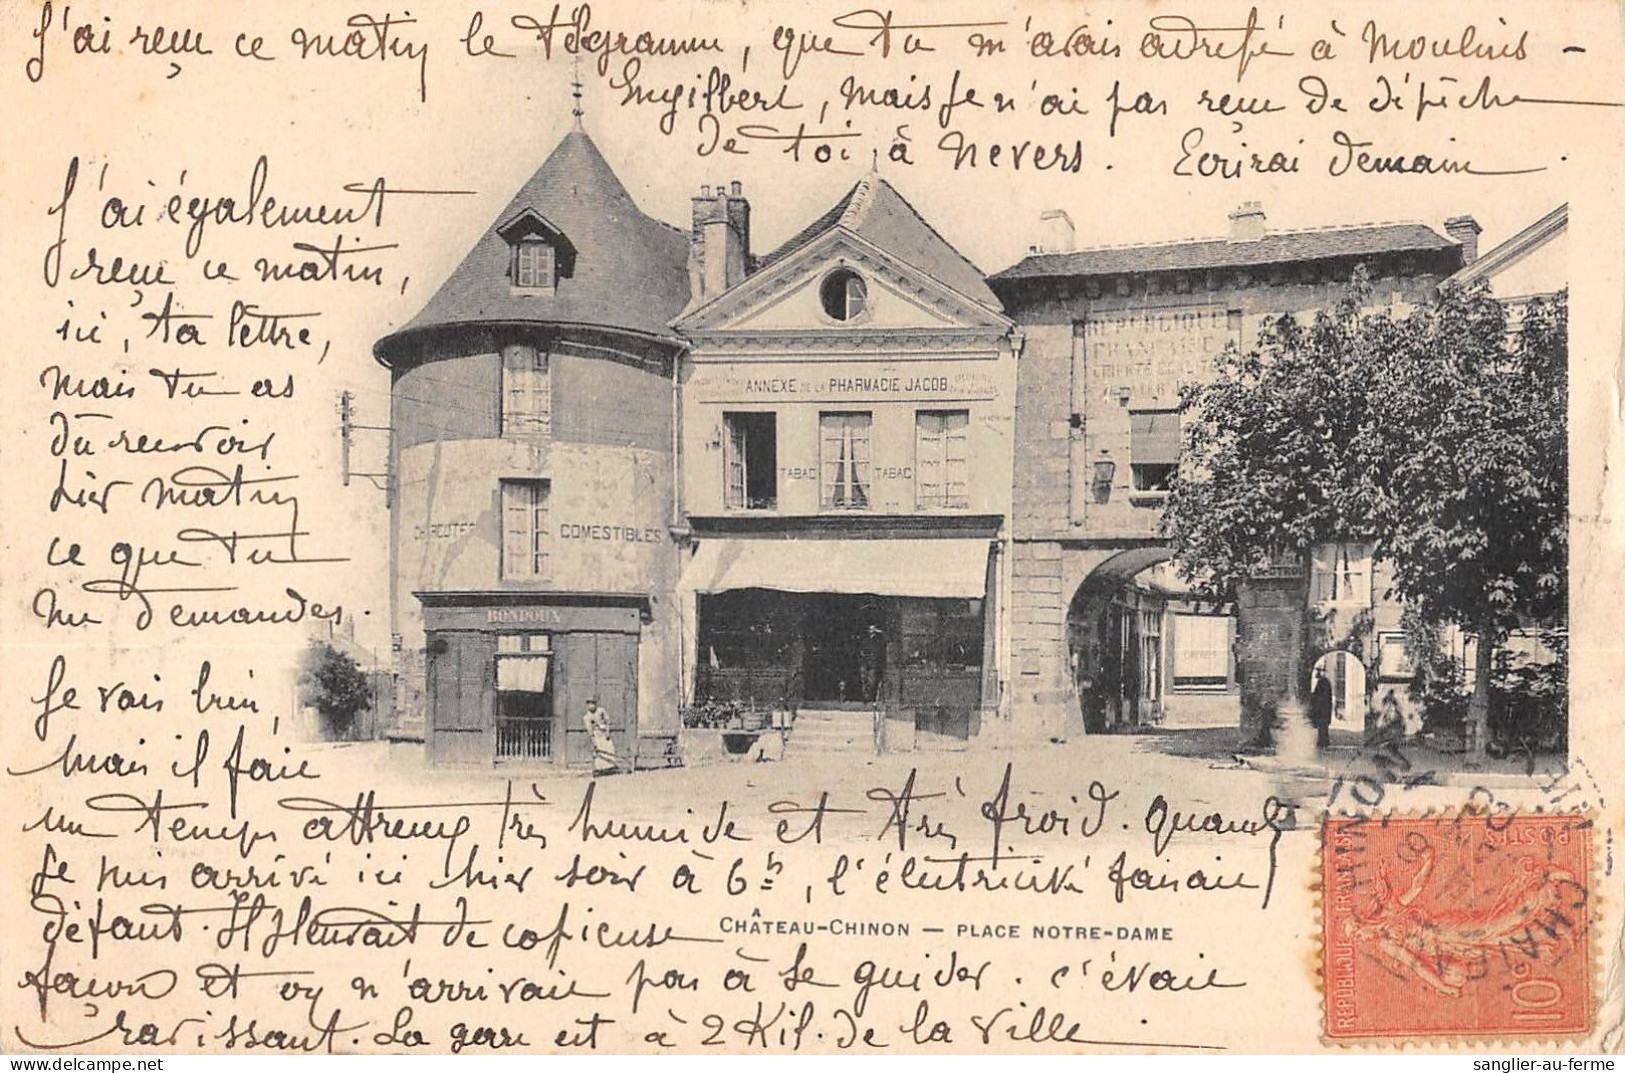 J'ai reçu ce matin le télégramme, que tu m'avais adressé à Moulins-
Engilbert, mais je n'ai pas reçu de dépêche
de toi à Nevers. Ecrirai demain.
J'ai également
reçu ce matin,
ici, ta lettre,
mais tu as
dû recevoir
hier matin
ce que tu
me demandes.
Je vais bien,
mais il fait
un temps affreux très humide et très froid. Quand
je suis arrivé ici hier soir à 6h, l'électricité faisait
défaut. Il pleuvait de copieuse
façon et on n'arrivait pas à se guider. c'était
ravissant. La gare est à 2 Kil. de la ville
RÉPUBLIQUE
FRANÇAISE
LIBERTÉ EGALITÉ
ANNEXE DE LA PHARMACIE JACOB
TABAC TABAC
CHARCUTER COMESTIBLES
BONDOUX
CHÂTEAU-CHINON — PLACE NOTRE-DAME
REPUBLIQUE FRANÇAISE
POSTES
10c
CHATEAU CHINON
sanglier-au-ferme